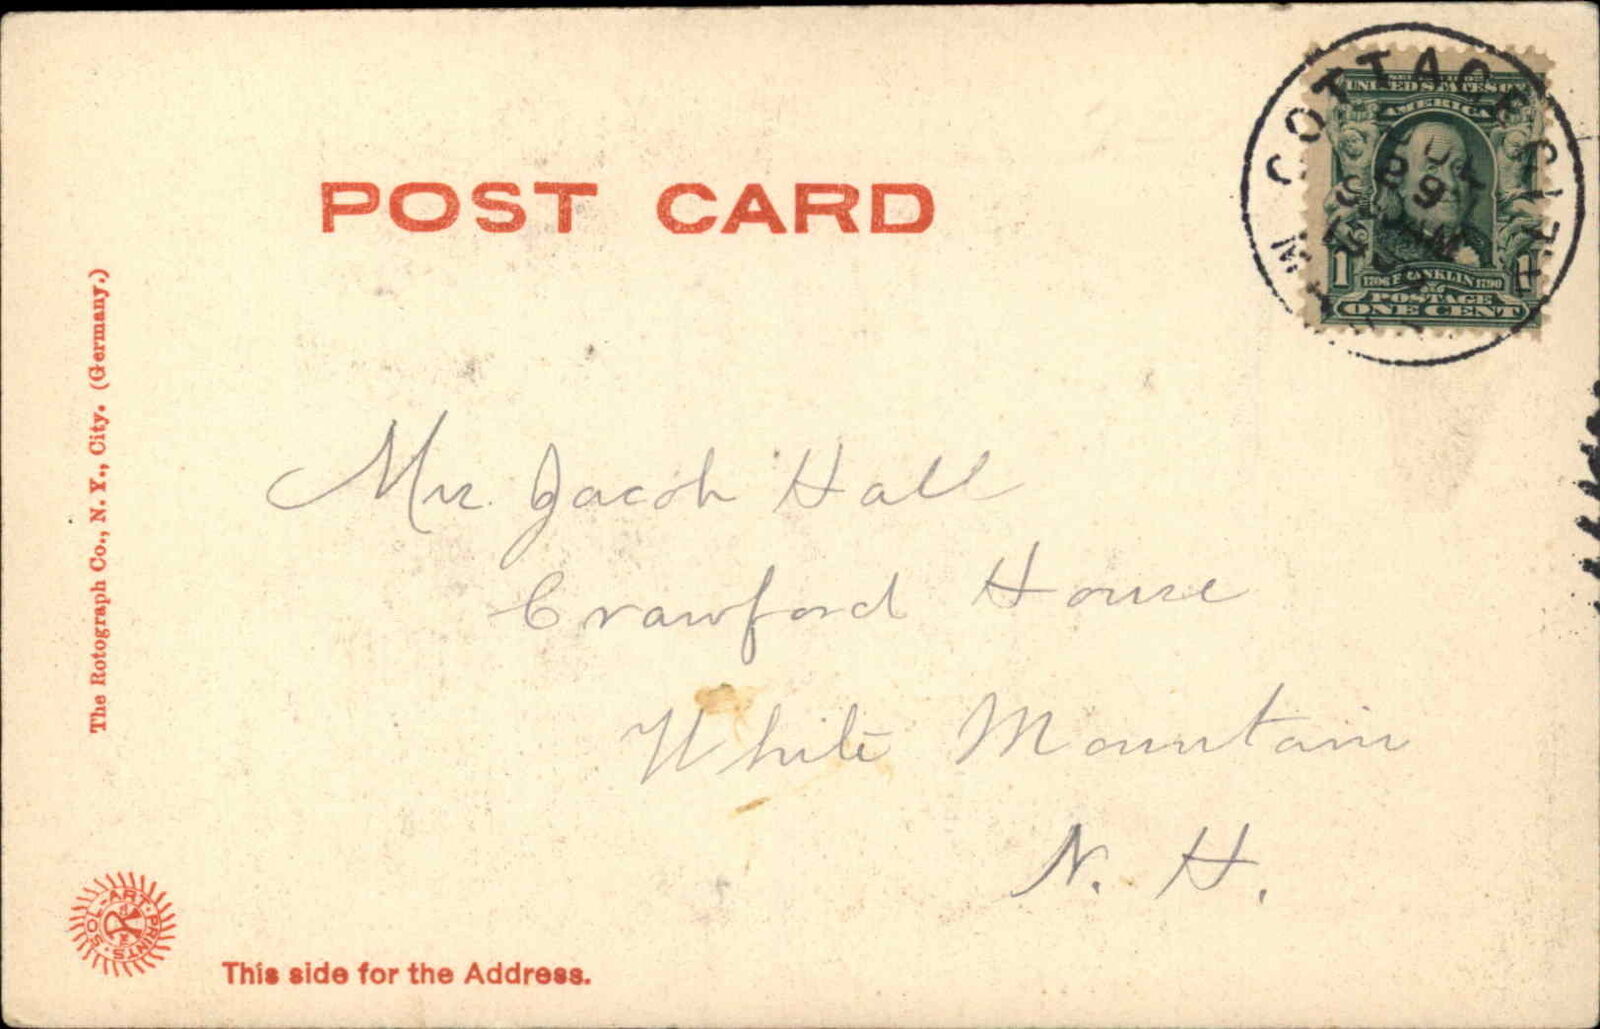 POST CARD
COTTAGE CITY
SERIES 1902
UNITED STATES OF
AMERICA
SEP
9
1706 FRANKLIN 1790
POSTAGE
1 1
ONE CENT
Mr. Jacob Hall
Crawford House
White Mountain
N. H.
The Rotograph Co., N. Y., City. (Germany.)
SOL-ART-PRINTS
This side for the Address.